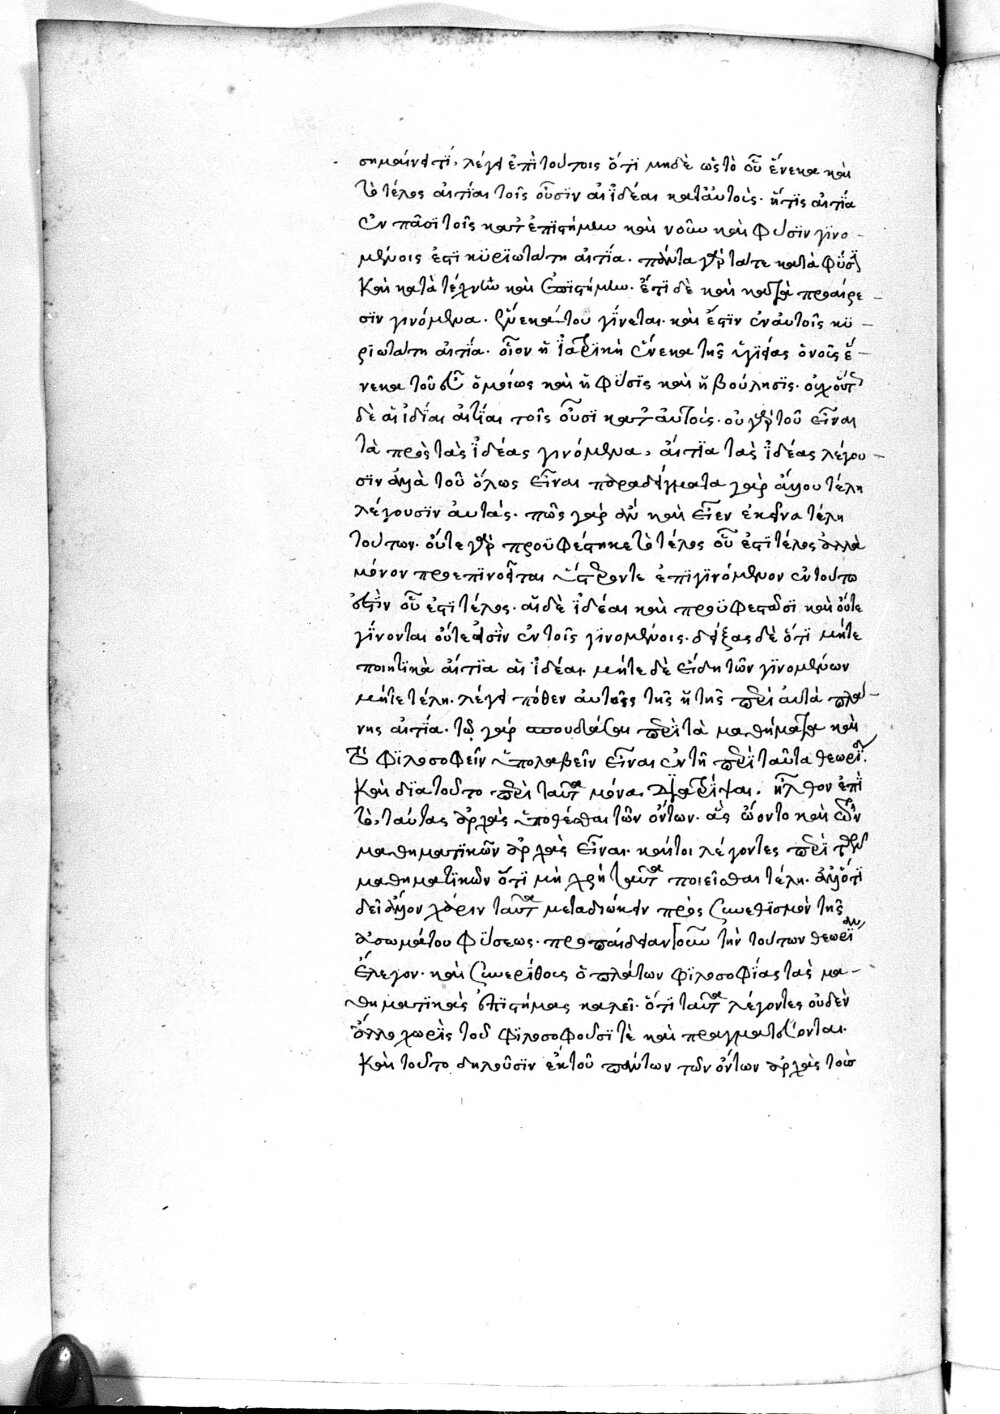 σημαίνει τί, λέγει ἐπὶ τούτοις ὅτι μηδὲ ὡς τὸ οὗ ἕνεκα καὶ
τὸ τέλος αἰτίαι τοῖς οὖσιν αἱ ἰδέαι κατ' αὐτούς. ἥτις αἰτία
ἐν πᾶσι τοῖς κατ' ἐπιστήμην καὶ νοῦν καὶ φύσιν γινο-
μένοις ἐστὶ κυριωτάτη αἰτία. πάντα γὰρ τά τε κατὰ φύσιν
καὶ κατὰ τέχνην καὶ ἐπιστήμην. ἔτι δὲ καὶ κατὰ προαίρε-
σιν γινόμενα. ἕνεκά του γίνεται. καὶ ἔστιν ἐν αὐτοῖς κυ-
ριωτάτη αἰτία. οἷον ἡ ἰατρικὴ ἕνεκα τῆς ὑγιείας
νεκα τούτου ὁμοίως καὶ ἡ φύσις καὶ ἡ βούλησις. οὐχ οὕτω
δὲ αἱ ἰδέαι αἰτίαι τοῖς οὖσι κατ' αὐτούς. οὐ γὰρ τοῦ εἶναι
τὰ πρὸς τὰς ἰδέας γινόμενα, αἴτια τὰς ἰδέας λέγου-
σιν ἀλλὰ τοῦ ὅλως εἶναι παραδείγματα γὰρ ἀλλ' οὐ τέλη
λέγουσιν αὐτάς. πῶς γὰρ ἂν καὶ εἶεν ἐκεῖνα τέλη
τούτων. οὔτε γὰρ προϋφέστηκε τὸ τέλος οὗ ἐστὶ τέλος ἀλλὰ
μόνον προεπινοεῖται ὕστερόν τε ἐπιγινόμενον ἐν τούτῳ
ἐστὶν οὗ ἐστὶ τέλος. αἱ δὲ ἰδέαι καὶ προϋφεστᾶσι καὶ οὔτε
γίνονται οὔτε εἰσὶν ἐν τοῖς γινομένοις. δείξας δὲ ὅτι μήτε
ποιητικὰ αἴτια αἱ ἰδέαι. μήτε δὲ εἴδη τῶν γινομένων
μήτε τέλη. λέγει πόθεν αὐτοῖς τῆς ἡ τῆς περὶ αὐτὰ πλά-
νης αἰτία. τῷ γὰρ σπουδάσαι περὶ τὰ μαθήματα καὶ
τὸ φιλοσοφεῖν ὑπολαβεῖν εἶναι ἐν τῇ περὶ ταῦτα θεωρίᾳ.
καὶ διὰ τοῦτο περὶ ταῦτα μόνα διατρίψαι. ἦλθον ἐπὶ
τὸ, ταύτας ἀρχὰς ὑποθέσθαι τῶν ὄντων. ἃς ᾤοντο καὶ τῶν
μαθηματικῶν ἀρχὰς εἶναι. καίτοι λέγοντες περὶ τῶν
μαθηματικῶν ὅτι μὴ χρὴ ταῦτα ποιεῖσθαι τέλη. ἀλλ' ὅτι
δεῖ ἄλλων χάριν ταῦτα μεταδιώκειν πρὸς συνεθισμὸν τῆς
ἀσωμάτου φύσεως. προπαιδείαν γοῦν τὴν τούτων θεωρίαν
ἔλεγον. καὶ συνερίθους ὁ πλάτων φιλοσοφίας τὰς μα-
θηματικὰς ἐπιστήμας καλεῖ. ὅτι ταῦτα λέγοντες οὐδὲν
ἄλλο χωρὶς τούτου φιλοσοφοῦσί τε καὶ πραγματεύονται.
καὶ τοῦτο δηλοῦσιν ἐκ τοῦ πάντων τῶν ὄντων ἀρχὰς